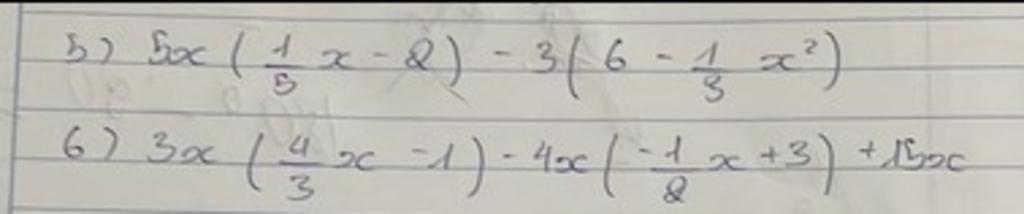 5) 5x ( 1/5 x - 2 ) - 3 ( 6 - 1/3 x² )
6) 3x ( 4/3 x - 1 ) - 4x ( -1/2 x + 3 ) + 15x